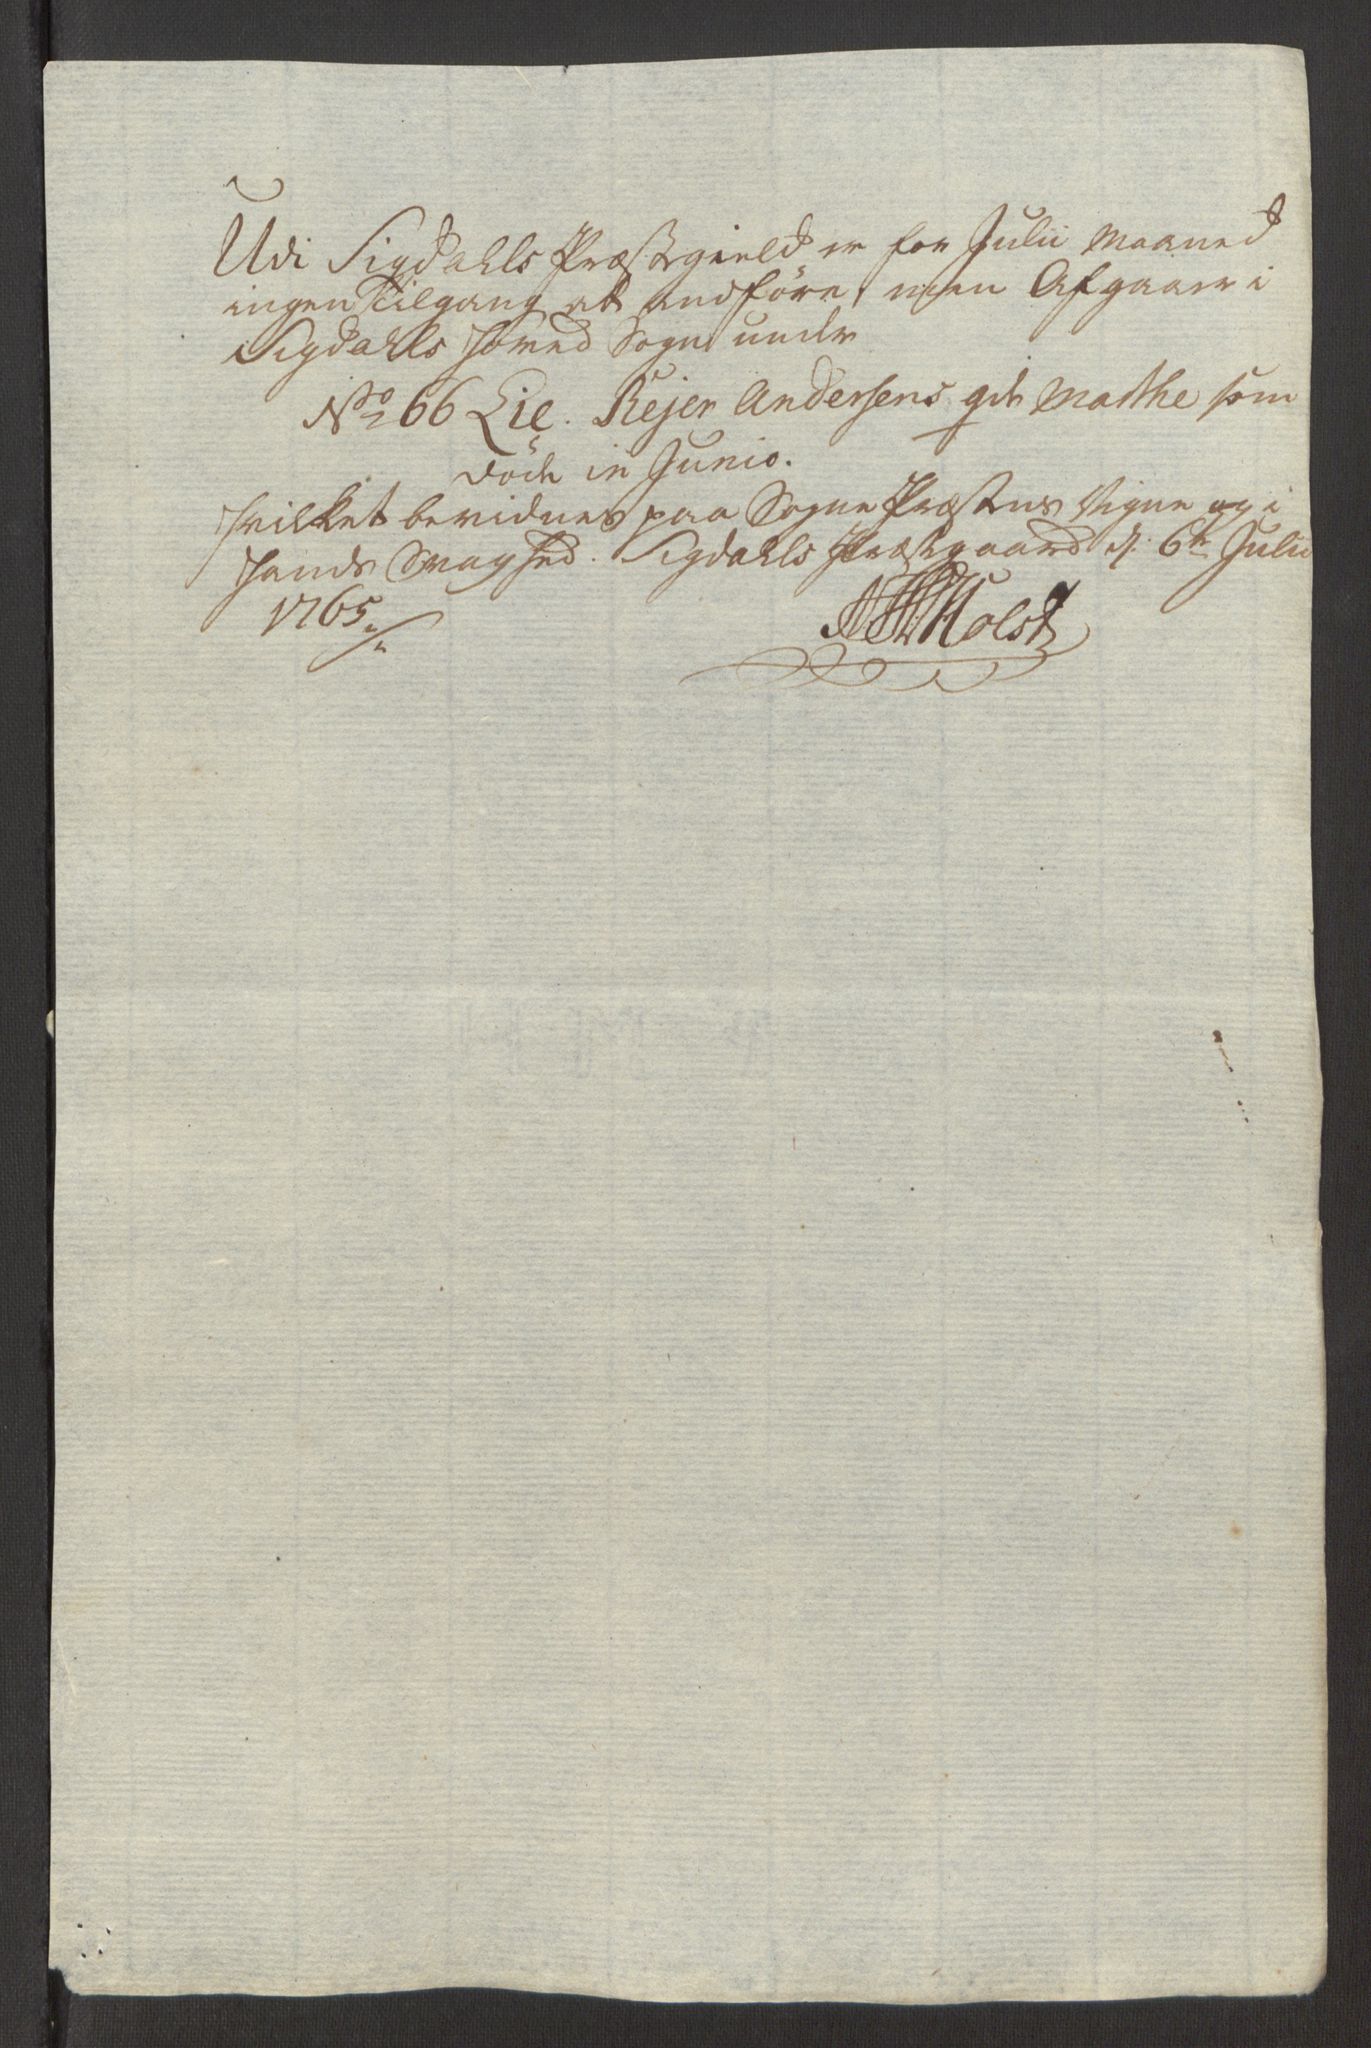 Udi Sigdahls Præstegield er for Julii Maaned
ingen Tilgang at andføre, men Afgaaer i
Sigdahls Hoved Sogn under
No 66 Lie. Rejer Andersens gde Mathe som
döde in Junio.
Hvilket bevidnes paa Sogne Præstens Vegne og i
Hands Svaghed. Sigdahls Præstegaard d: 6te Julii
1765
Holst